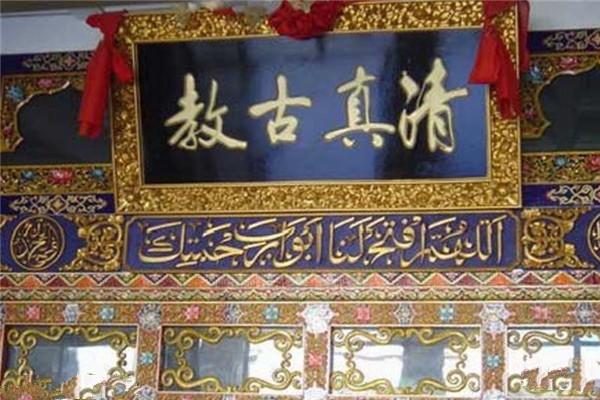 清真古教
اللهم افتح لنا ابواب رحمتك